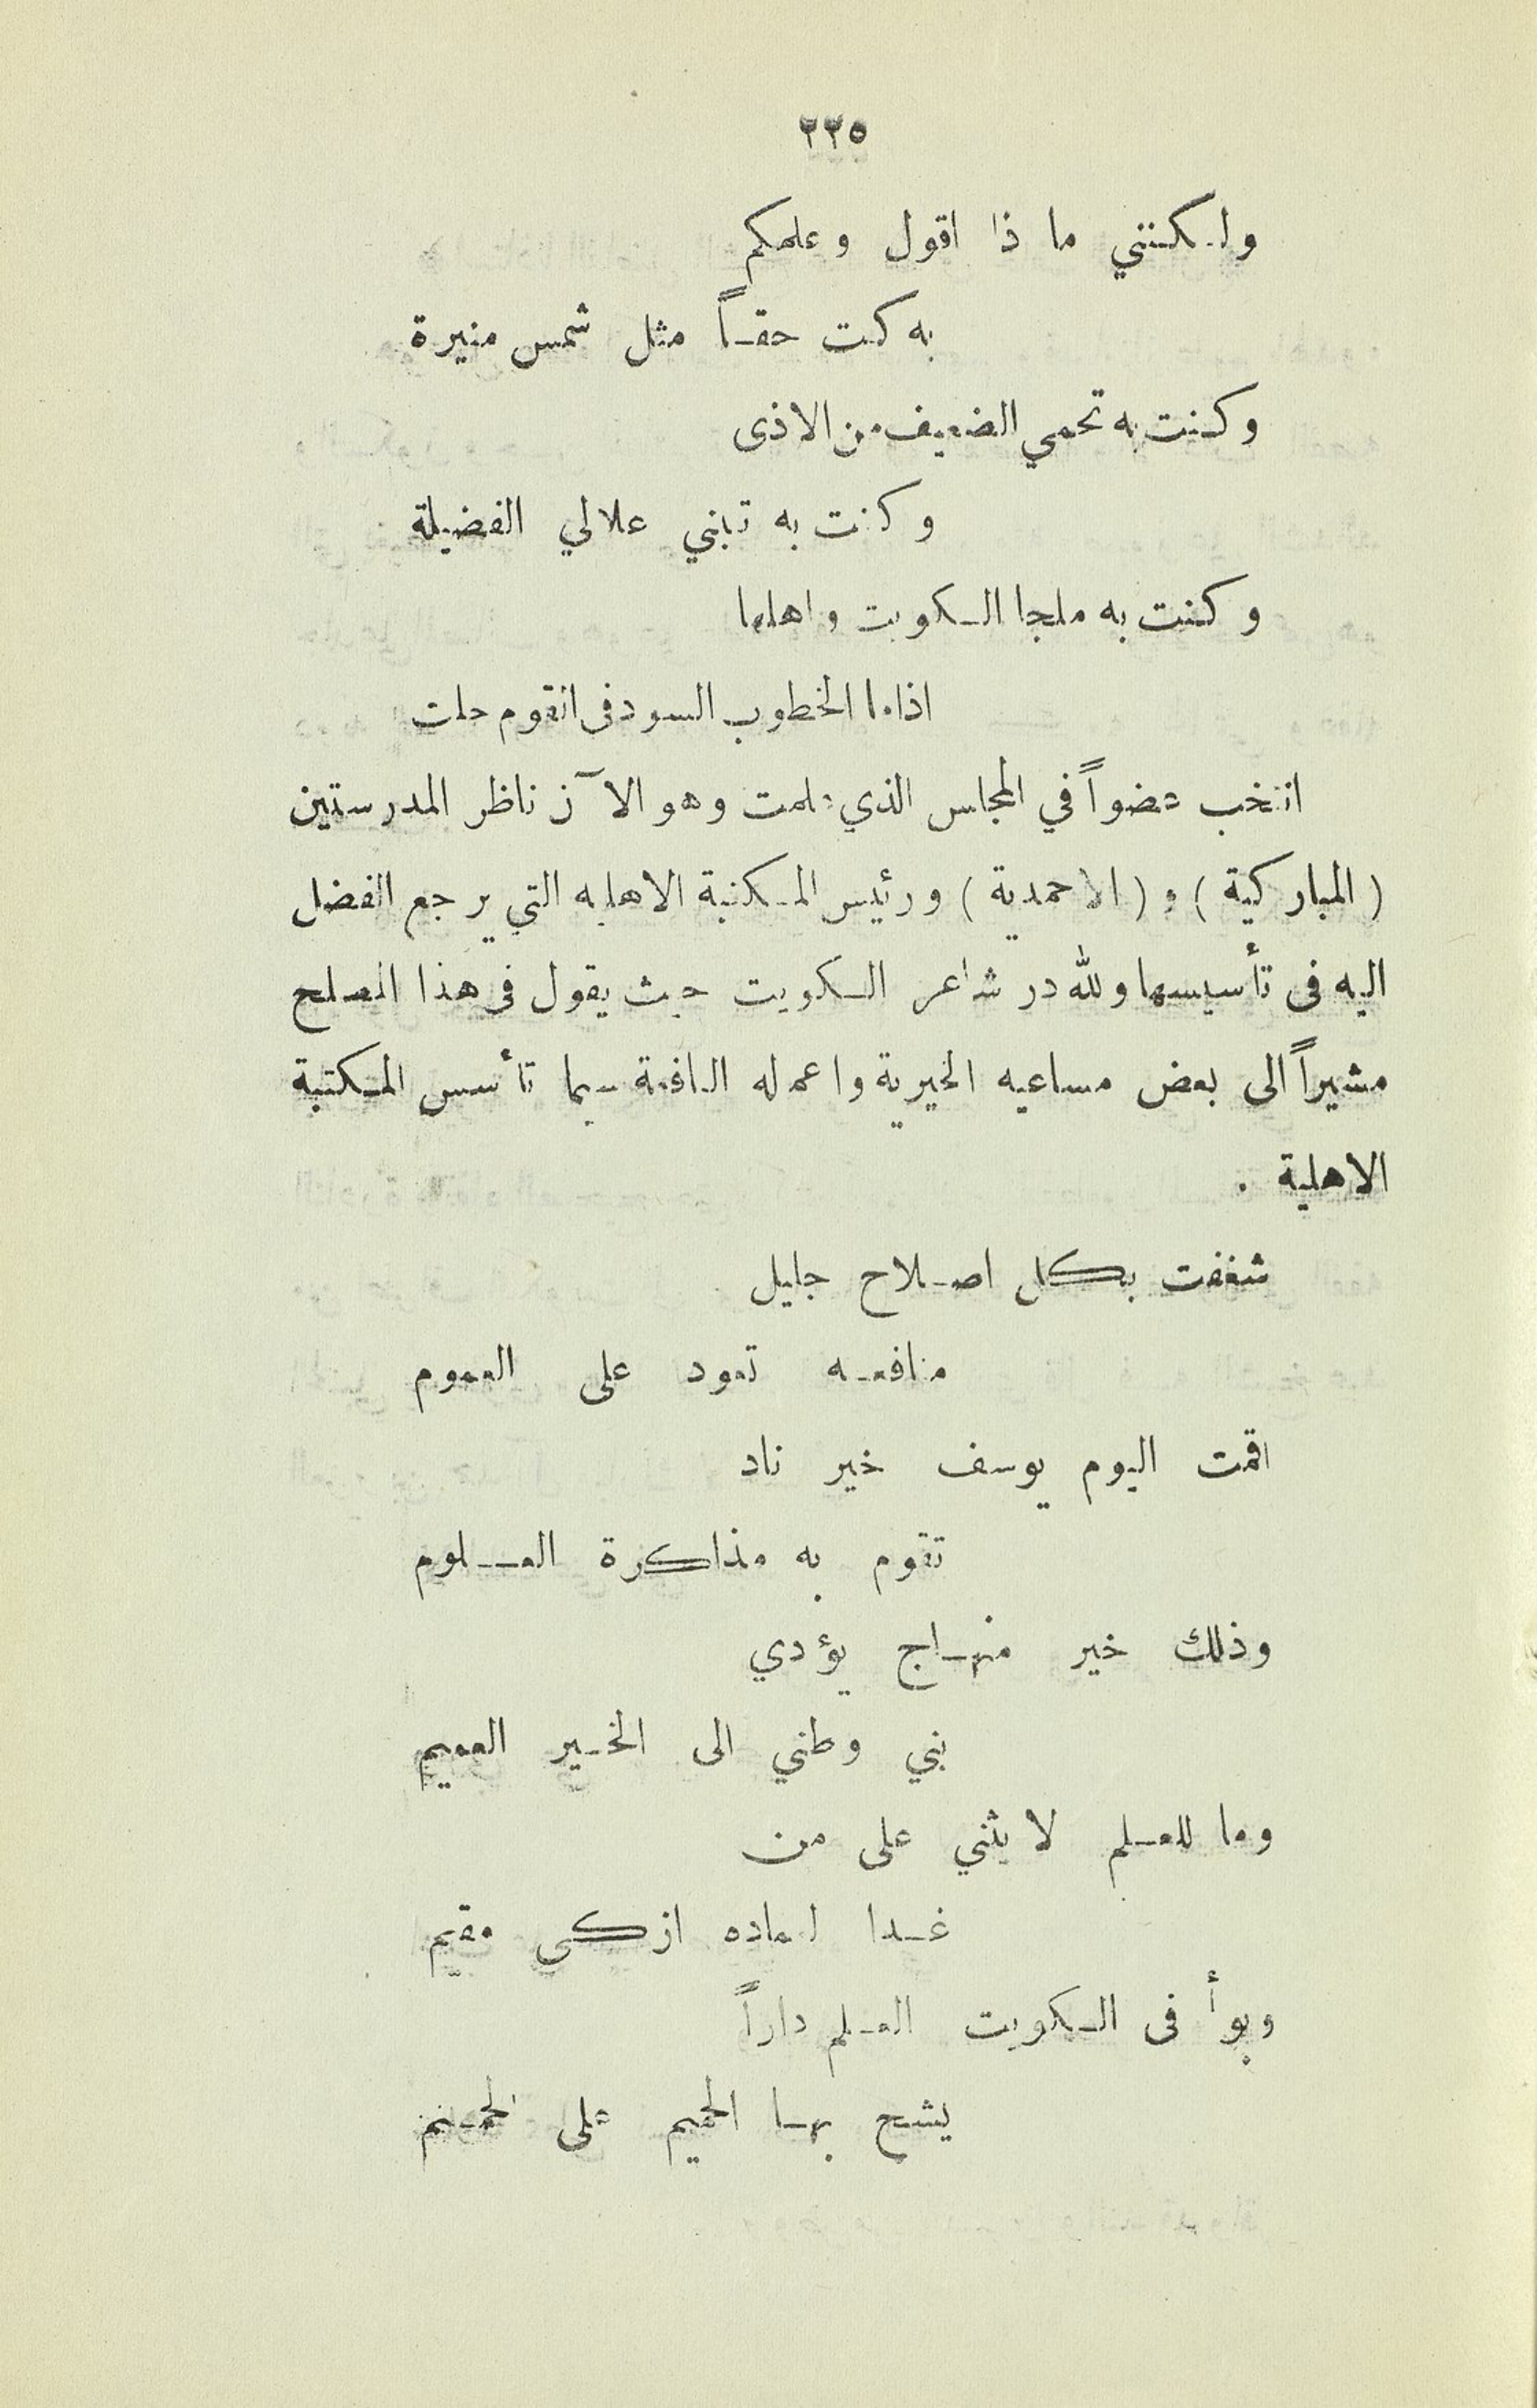 ٢٢٥
ولكنني ما ذا اقول وعلمكم
به كنت حقاً مثل شمس منيرة
وكنت به تحمي الضعيف من الاذى
وكنت به تبني علالي الفضيلة
وكنت به ملجا الكويت واهلها
اذا ما الخطوب السود فى القوم حلت
انتخب عضواً في المجلس الذي علمت وهو الآن ناظر المدرستين
( المباركية ) و ( الاحمدية ) ورئيس المكتبة الاهليه التي يرجع الفضل
اليه فى تأسيسها ولله در شاعر الكويت حيث يقول فى هذا المصلح
مشيراً الى بعض مساعيه الخيرية واعماله النافعة سيما تأسس المكتبة
الاهلية .
شغفت بكل اصلاح جليل
منافعه تعود على العموم
اقمت اليوم يوسف خير ناد
تقوم به مذاكرة العلوم
وذلك خير منهاج يؤدي
بني وطني الى الخير العميم
وما للعلم لا يثني على من
غدا لعماده ازكى مقيم
وبوأ فى الكويت العلم داراً
يشح بها الحميم على الحميم